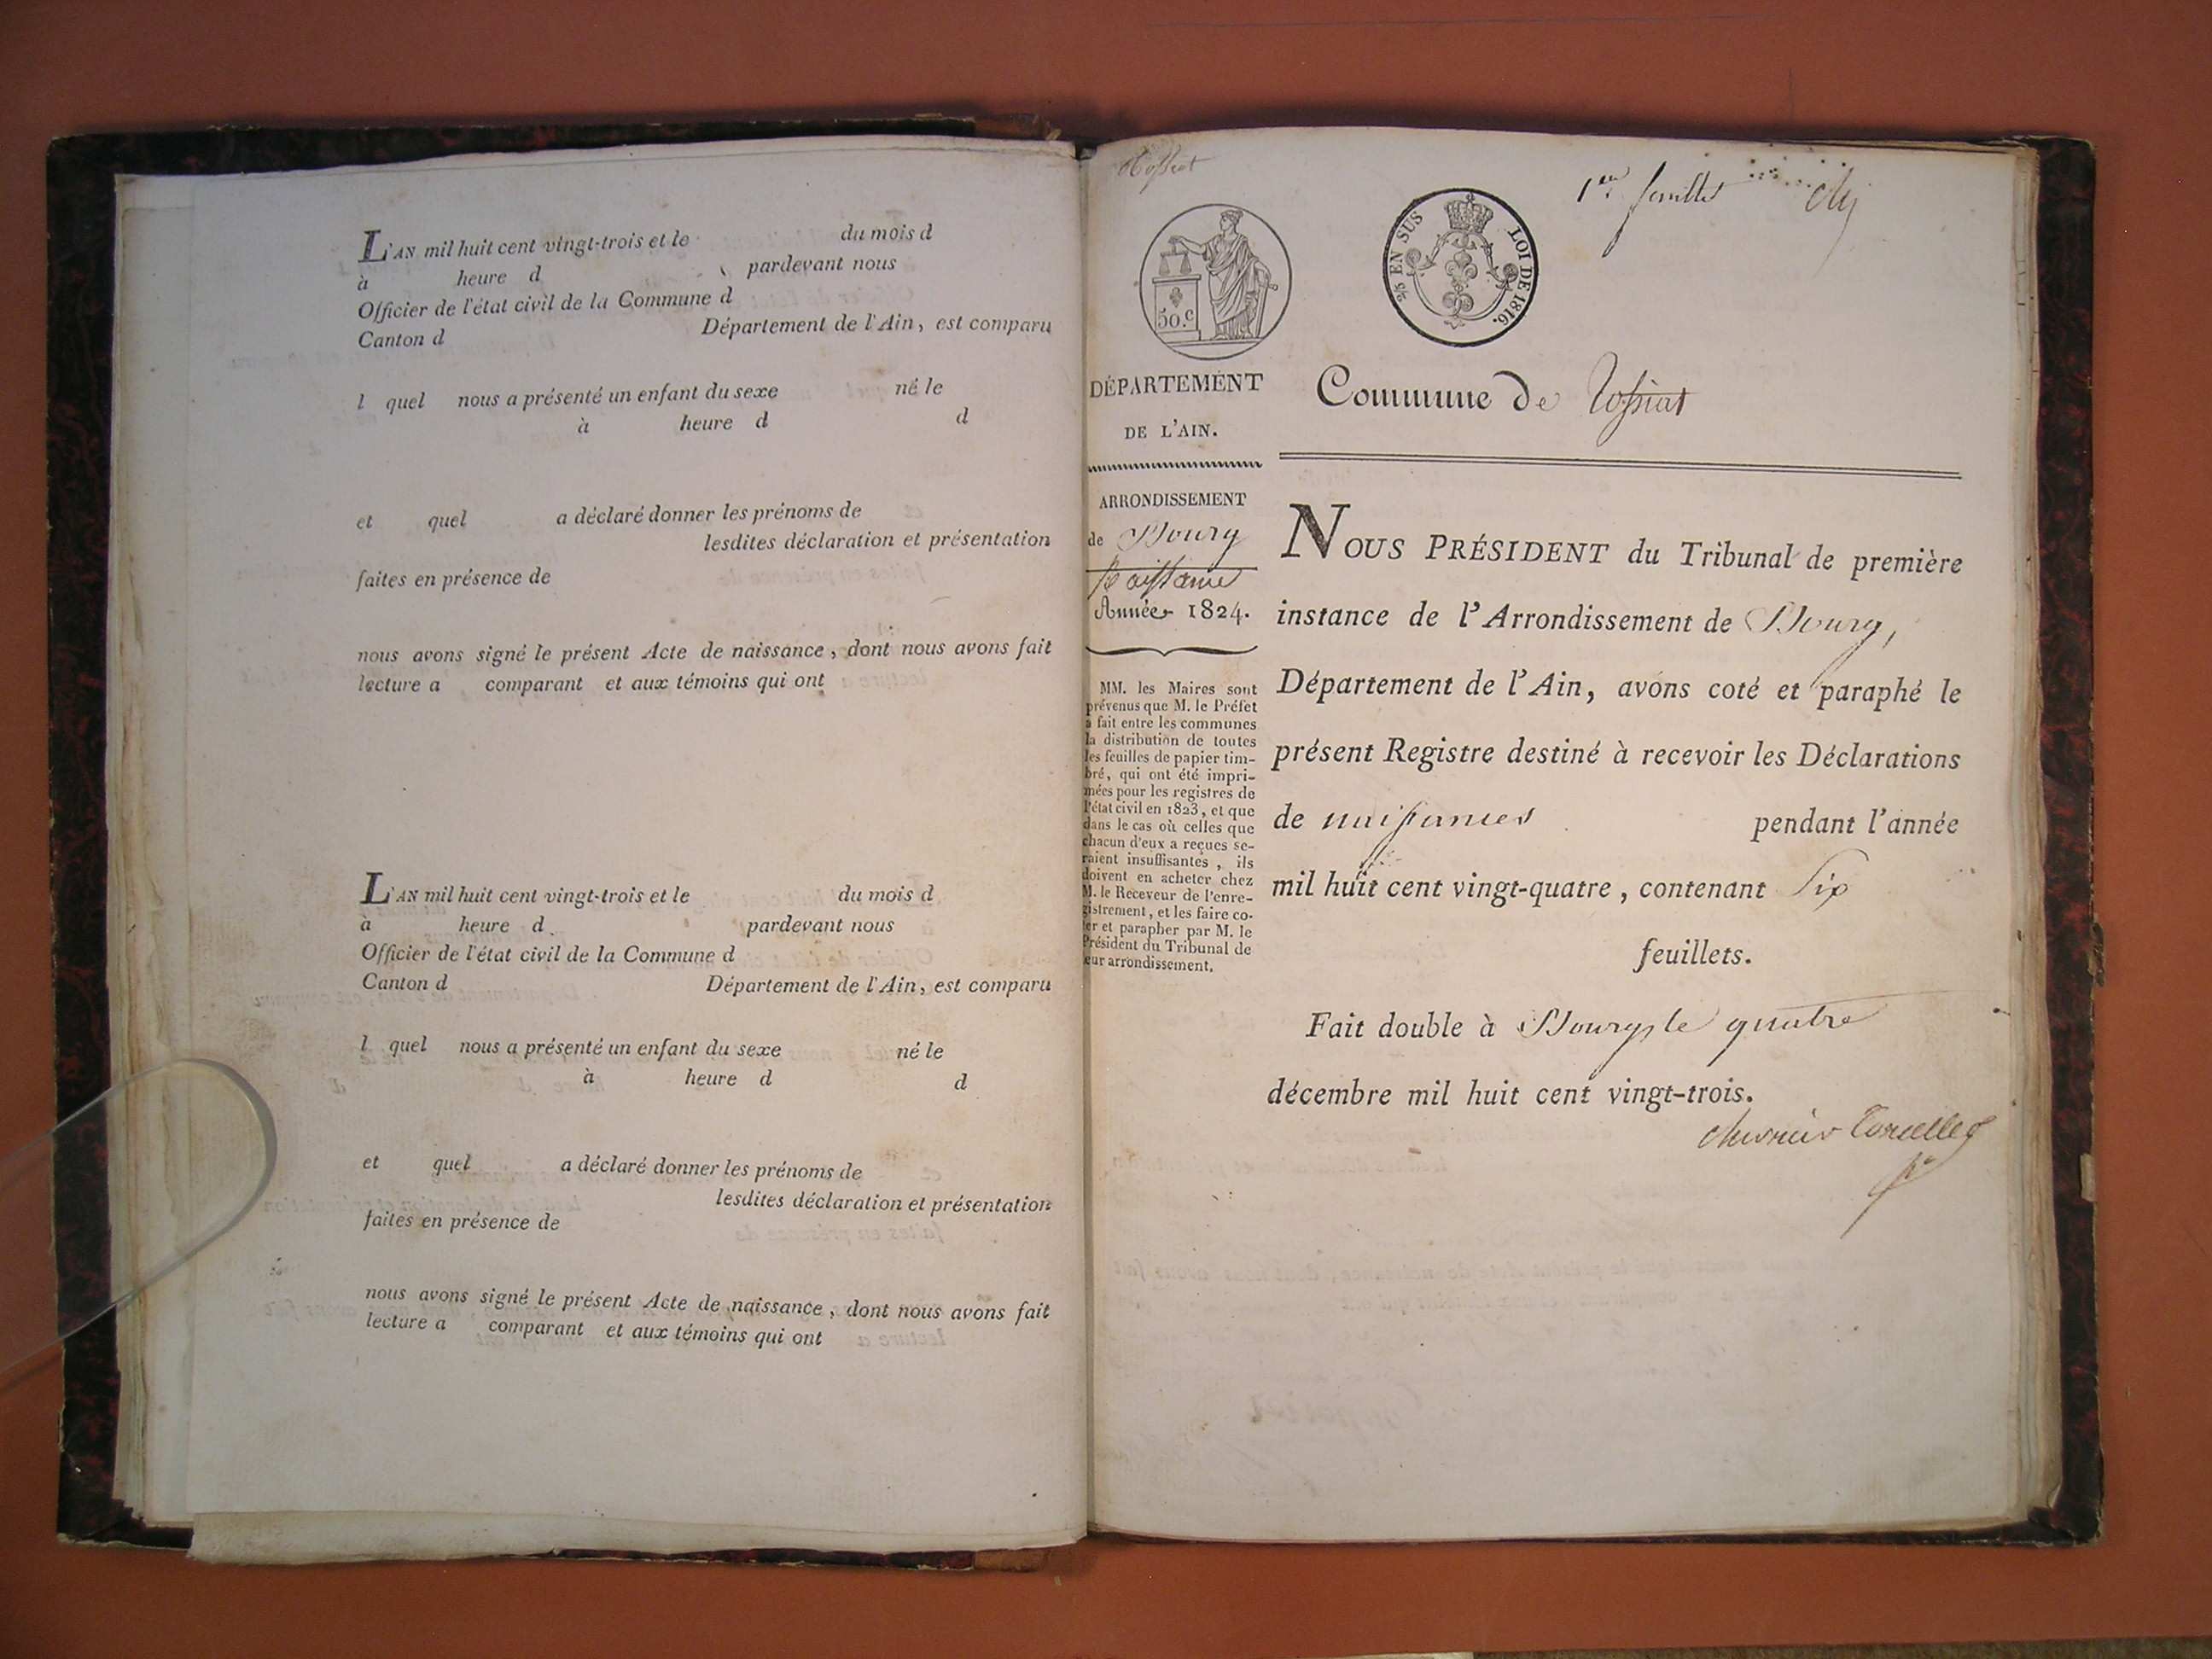 L'AN mil huit cent vingt-trois et le du mois d
à heure d pardevant nous
Officier de l'état civil de la Commune d
Canton d Département de l'Ain, est comparu
l quel nous a présenté un enfant du sexe né le
à heure d d
et quel a déclaré donner les prénoms de
lesdites déclaration et présentation
faites en présence de
nous avons signé le présent Acte de naissance, dont nous avons fait
lecture a comparant et aux témoins qui ont
L'AN mil huit cent vingt-trois et le du mois d
à heure d pardevant nous
Officier de l'état civil de la Commune d
Canton d Département de l'Ain, est comparu
l quel nous a présenté un enfant du sexe né le
à heure d d
et quel a déclaré donner les prénoms de
lesdites déclaration et présentation
faites en présence de
nous avons signé le présent Acte de naissance, dont nous avons fait
lecture a comparant et aux témoins qui ont
Tossiat
1er feuillet
50.c
2/5 EN SUS LOI DE 1816.
DÉPARTEMENT
DE L'AIN.
ARRONDISSEMENT
de Bourg
Naissance
Année 1824.
MM. les Maires sont
prévenus que M. le Préfet
a fait entre les communes
la distribution de toutes
les feuilles de papier tim-
bré, qui ont été impri-
mées pour les registres de
l'état civil en 1823, et que
dans le cas où celles que
chacun d'eux a reçues se-
raient insuffisantes, ils
doivent en acheter chez
M. le Receveur de l'enre-
gistrement, et les faire co-
ter et parapher par M. le
Président du Tribunal de
leur arrondissement.
Commune de Tossiat
NOUS PRÉSIDENT du Tribunal de première
instance de l'Arrondissement de Bourg,
Département de l'Ain, avons coté et paraphé le
présent Registre destiné à recevoir les Déclarations
de naissances pendant l'année
mil huit cent vingt-quatre, contenant Six
feuillets.
Fait double à Bourg, le quatre
décembre mil huit cent vingt-trois.